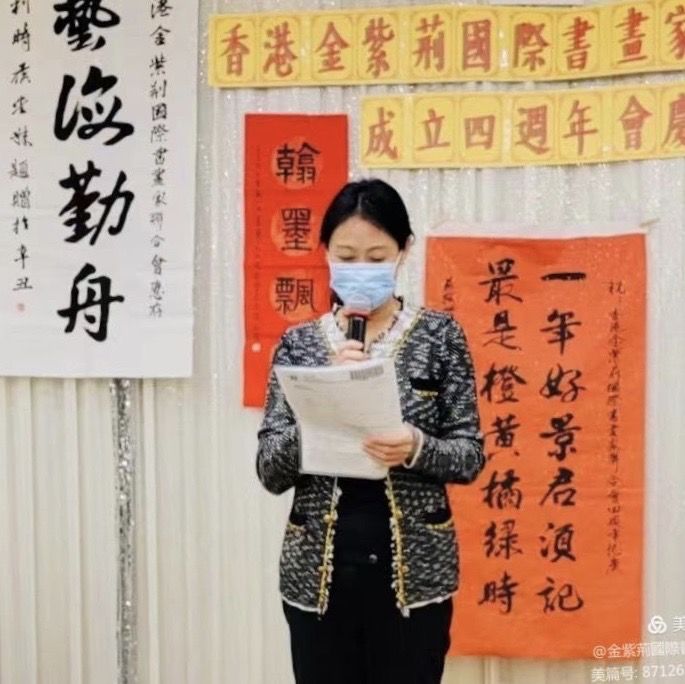 香港金紫荊國際書畫家
成立四週年會慶
港金紫荊國際書畫家聯合會惠存
藝海勤舟
題贈於辛丑
翰墨飄
祝香港金紫荊國際書畫家聯合會四週年
一年好景君須記
最是橙黃橘綠時
美
@金紫荊國際
美篇号: 87126